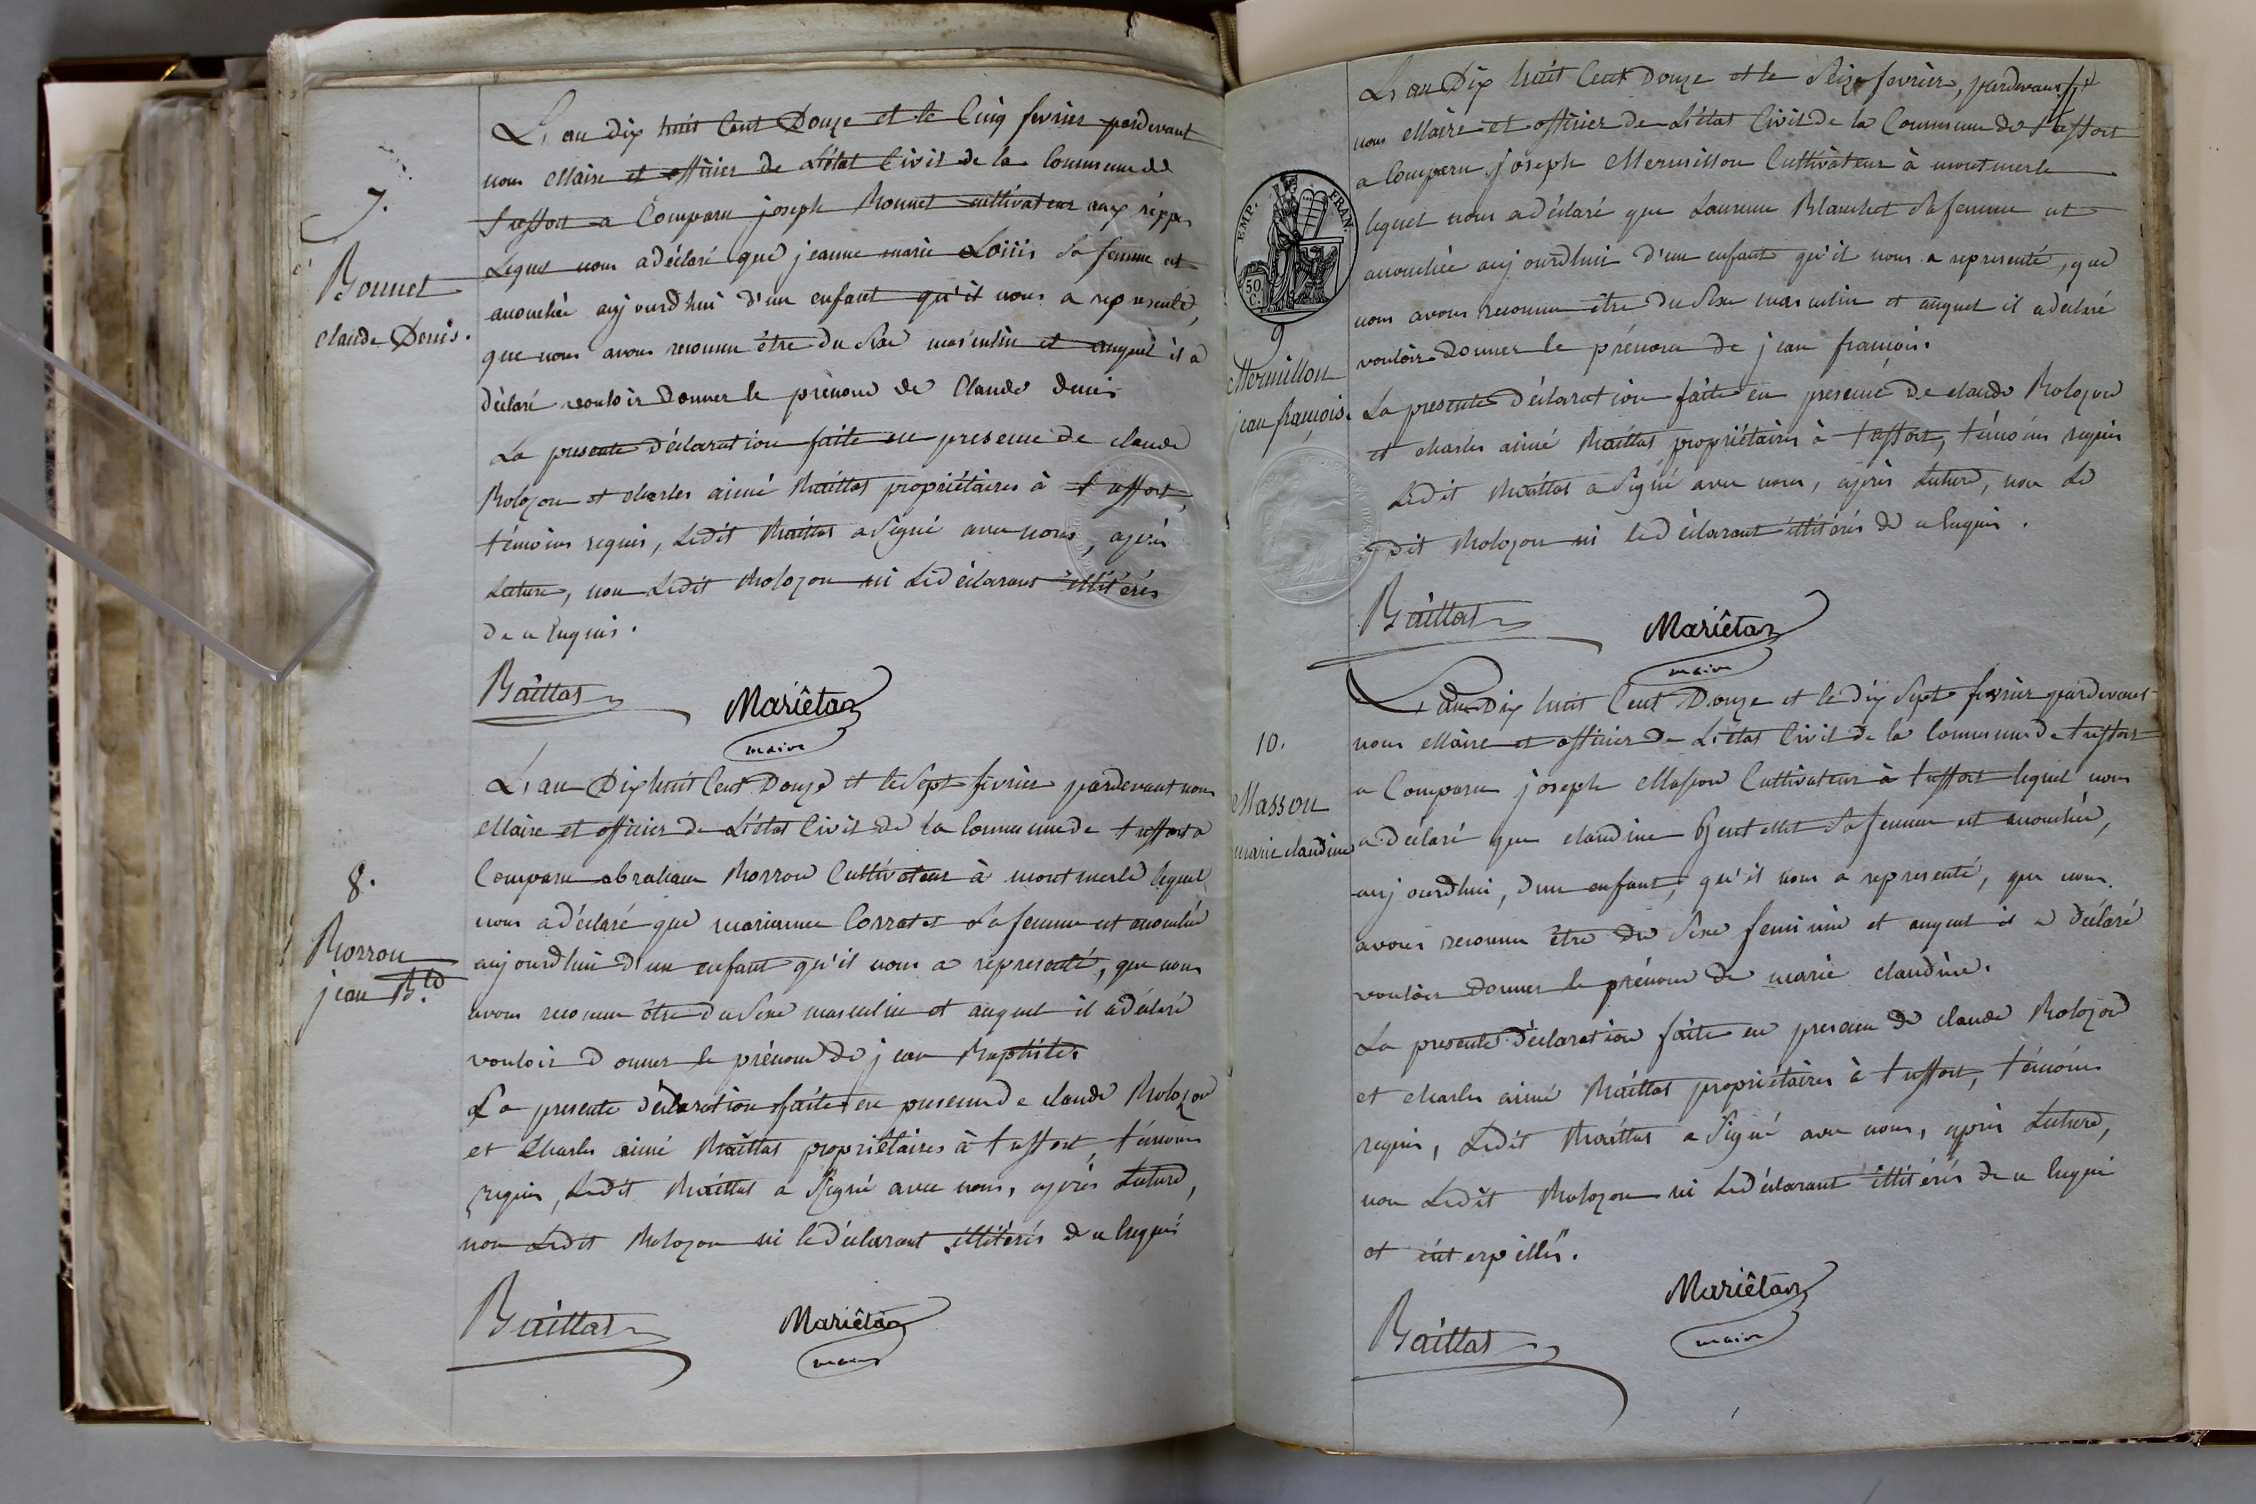 7.
Bonnet
claude Denis.
L'an dix huit Cent Douze et le Cinq fevrier pardevant
nous Maire et officier de L'état Civil de la Commune de
treffort a Comparu joseph Bonnet cultivateur aux
Lequel nous a déclaré que jeanne marie sa femme est
accouchée aujourdhui d'un enfant qu'il nous a representé,
que nous avons reconnu être du Sexe masculin et auquel il a
déclaré vouloir donner le prénom de Claude denis
La presente déclaration faite en presence de claude
Bolozon et charles aimé Baillat propriétaires à treffort,
témoins requis, Ledit Baillat a Signé avec nous, après
Lecture, non Ledit Bolozon ni Le déclarant illitérés
de ce Enquis.
Baillat
Mariétan
maire
8.
Borron
jean Bte
L'an Dix huit Cent Douze et le Sept fevrier pardevant nous
Maire et officier de L'état Civil de la Commune de treffort a
Comparu abraham Borron Cultivateur à montmerle lequel
nous a déclaré que marianne Corratet Sa femme est accouchée
aujourdhui d'un enfant qu'il nous a representé, que nous
avons reconnu être du Sexe masculin et auquel il a déclaré
vouloir donner le prénom de jean Baptiste.
La presente déclaration faite en presence de claude Bolozon
et Charles aimé Baillat propriétaires à treffort, témoins
requis, Ledit Baillat a Signé avec nous, après Lecture,
non Ledit Bolozon ni le déclarant illitérés de ce Enquis
Baillat
Mariétan
maire
EMP. FRAN.
50 C.
9
Mermillon
jean françois.
L'an Dix huit Cent Douze et le Seize fevrier, pardevant
nous Maire et officier de L'état Civil de la Commune de treffort
a Comparu joseph Mermillon Cultivateur à montmerle
lequel nous a déclaré que Laurence Blanchet Sa femme est
accouchée aujourdhui d'un enfant qu'il nous a representé, que
nous avons reconnu être du Sexe masculin et auquel il a declaré
vouloir donner le prénom de jean françois.
La presente déclaration faite en presence de claude Bolozon
et charles aimé Baillat propriétaires à treffort, témoins requis
Ledit Baillat a Signé avec nous, après Lecture, non Le
dit Bolozon ni le déclarant illitérés de ce Enquis.
Baillat
Mariétan
maire
10.
Masson
marie claudine
L'an Dix huit Cent Douze et le dix Sept fevrier pardevant
nous Maire et officier de L'état Civil de la Commune de treffort
a Comparu joseph Masson Cultivateur à treffort lequel nous
a déclaré que claudine Sa femme est accouchée,
aujourdhui, d'un enfant, qu'il nous a representé, que nous
avons reconnu être du Sexe feminin et auquel il a déclaré
vouloir donner le prénom de marie claudine.
La presente déclaration faite en presence de claude Bolozon
et charles aimé Baillat propriétaires à treffort, témoins
requis, Ledit Baillat a Signé avec nous, après Lecture,
non Ledit Bolozon ni Le déclarant illitérés de ce Enquis
et
Baillat
Mariétan
maire